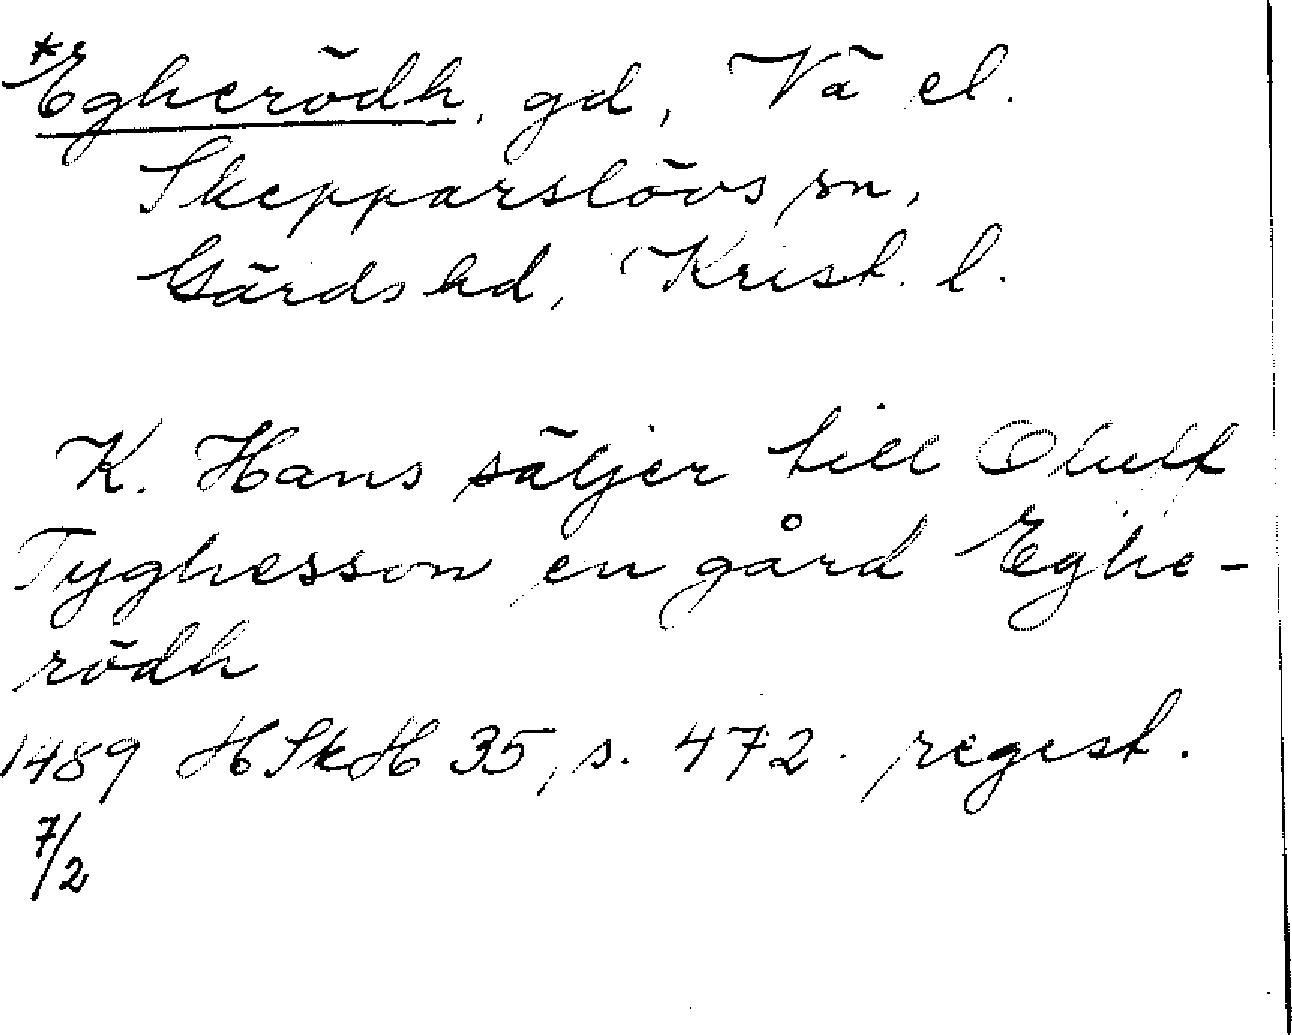 *Egherödh, gd, Vä el.
Skepparslövs sn,
Gärds hd, Krist. l.
K. Hans säljer till Oluff
Tyghesson en gård Eghe-
rödh
1489 HSkH 35, s. 472. regest.
7/2